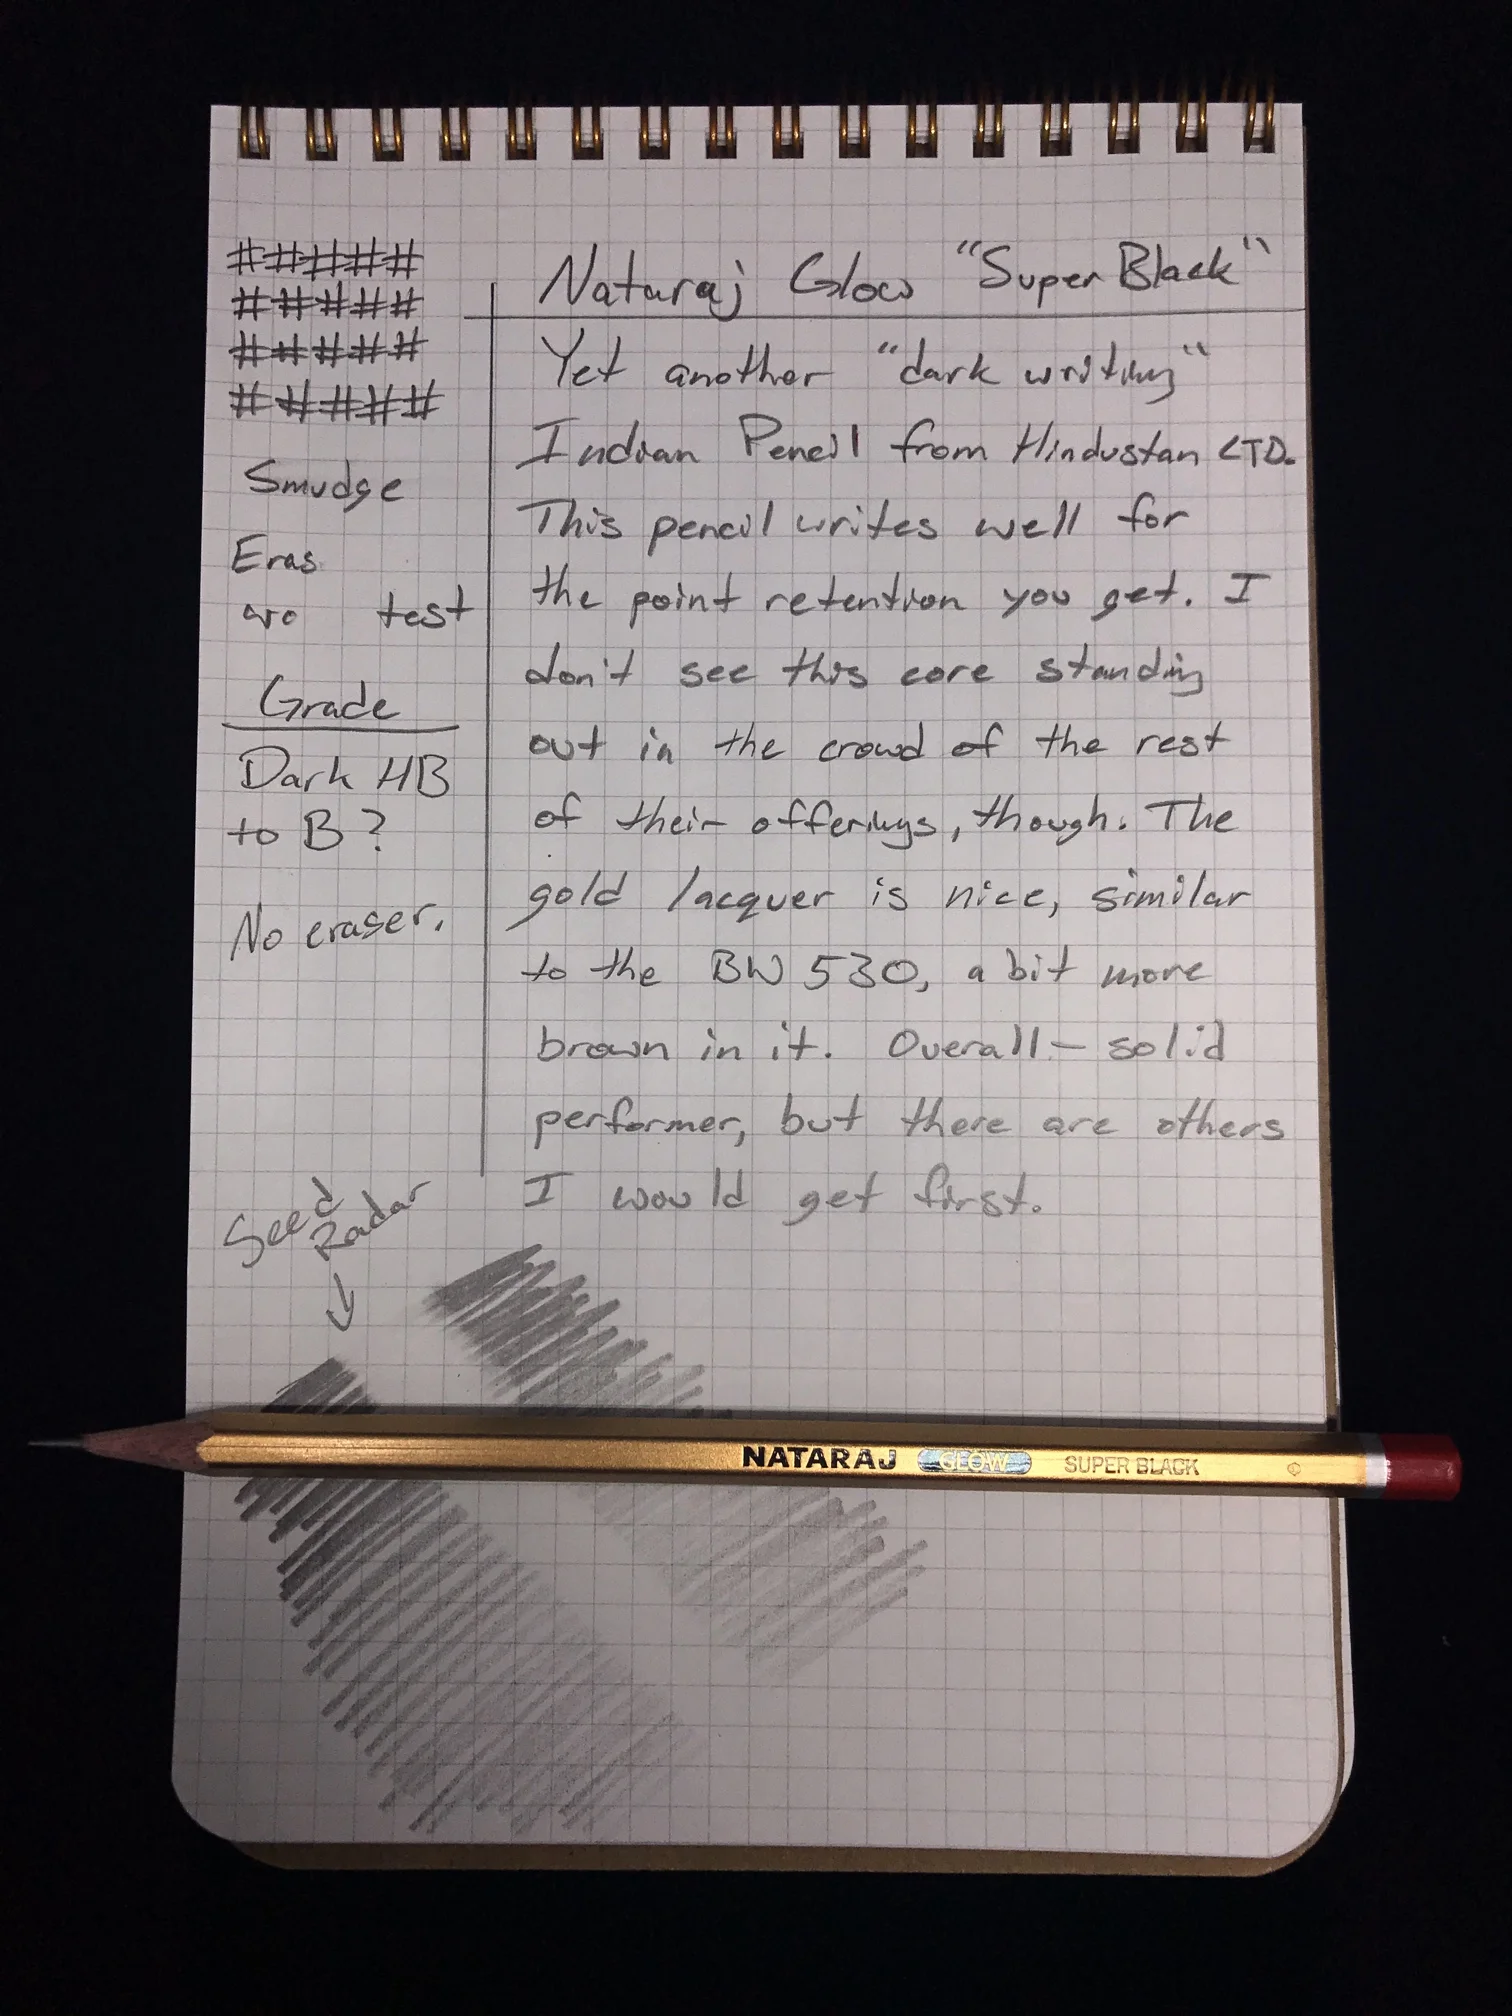 Nataraj Glow "Super Black"
Yet another "dark writing"
Indian Pencil from Hindustan LTD.
This pencil writes well for
the point retention you get. I
don't see this core standing
out in the crowd of the rest
of their offerings, though. The
gold lacquer is nice, similar
to the BW 530, a bit more
brown in it. Overall - solid
performer, but there are others
I would get first.
# # # # #
# # # # #
# # # # #
# # # # #
Smudge
Eras
test
Grade
Dark HB
to B?
No eraser.
Seed
Radar
NATARAJ GLOW SUPER BLACK